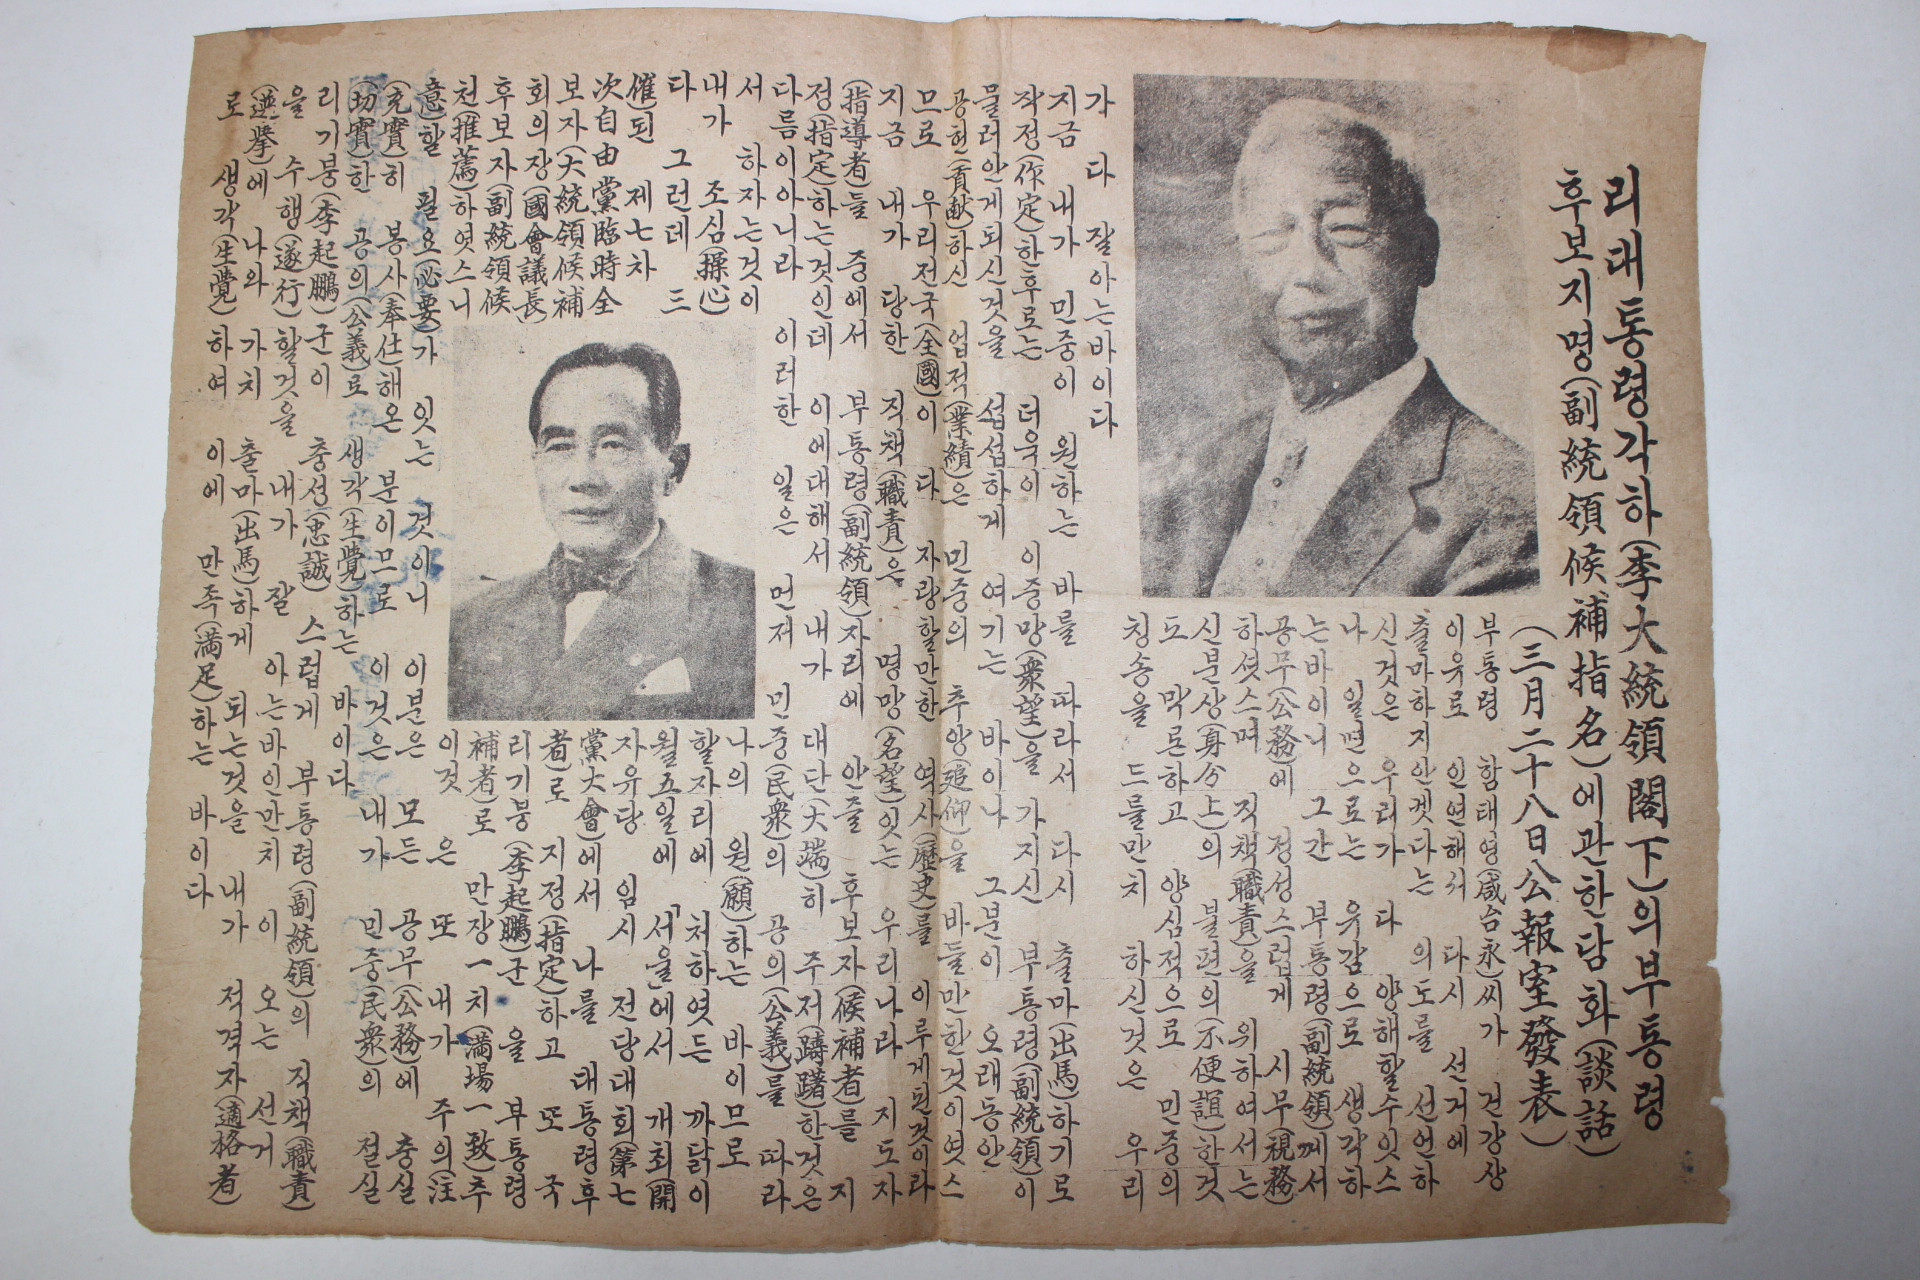 리대통령각하(李大統領閣下)의부통령
후보지명(副統領候補指名)에관한담화(談話)
(三月二十八日公報室發表)
부통령 함태영(咸台永)씨가 건강상
이유로 인연해서 다시 선거에
출마하지안켓다는 의도를 선언하
신것은 우리가 다 양해할수잇스
나 일면으로는 유감으로 생각하
는바이니 그간 부통령(副統領)께서
공무(公務)에 정성스럽게 시무(視務)
하셧스며 직책(職責)을 위하여서는
신분상(身分上)의 불편의(不便誼)한것
도 막론하고 양심적으로 민중의
칭송을 드를만치 하신것은 우리
가 다 잘아는바이다
지금 내가 민중이 원하는 바를 따라서 다시 출마(出馬)하기로
작정(作定)한후로는 더욱이 이중망(衆望)을 가지신 부통령(副統領)이
물러안게되신것을 섭섭하게 여기는 바이나 그분이 오래동안
공헌(貢献)하신 업적(業績)은 민중의 추앙(追仰)을 바들만한것이엿스
므로 우리전국(全國)이 다 자랑할만한 역사(歷史)를 이루게된것이라
지금 내가 당한 직책(職責)은 명망(名望)잇는 우리나라 지도자
(指導者)들 중에서 부통령(副統領)자리에 안즐 후보자(候補者)를 지
정(指定)하는것인데 이에대해서 내가 대단(大端)히 주저(躊躇)한것은
다름이아니라 이러한 일은 먼저 민중(民衆)의 공의(公義)를 따라
서 하자는것이 나의 원(願)하는 바이므로
내가 조심(操心)할자리에 처하엿든 까닭이
다 그런데 三월五일에 「서울」에서 개최(開
催)된 제七차 자유당 임시 전당대회(第七
次自由黨臨時全黨大會)에서 나를 대통령후
보자(大統領候補者)로 지정(指定)하고 또 국
회의장(國會議長) 리기붕(李起鵬)군을 부통령
후보자(副統領候補者)로 만장一치(満場一致)추
천(推薦)하엿스니 이것은 또 내가 주의(注
意)할 필요(必要)가 잇는 것이니 이분은 모든 공무(公務)에 충실
(充實)히 봉사(奉仕)해온 분이므로 이것은 내가 민중(民衆)의 절실
(切實)한 공의(公義)로 생각(生覺)하는 바이다
리기붕(李起鵬)군이 충성(忠誠)스럽게 부통령(副統領)의 직책(職責)
을 수행(遂行)할것을 내가 잘 아는바인만치 이 오는 선거
(選擧)에 나와 가치 출마(出馬)하게 되는것을 내가 적격자(適格者)
로 생각(生覺)하여 이에 만족(満足)하는 바이다